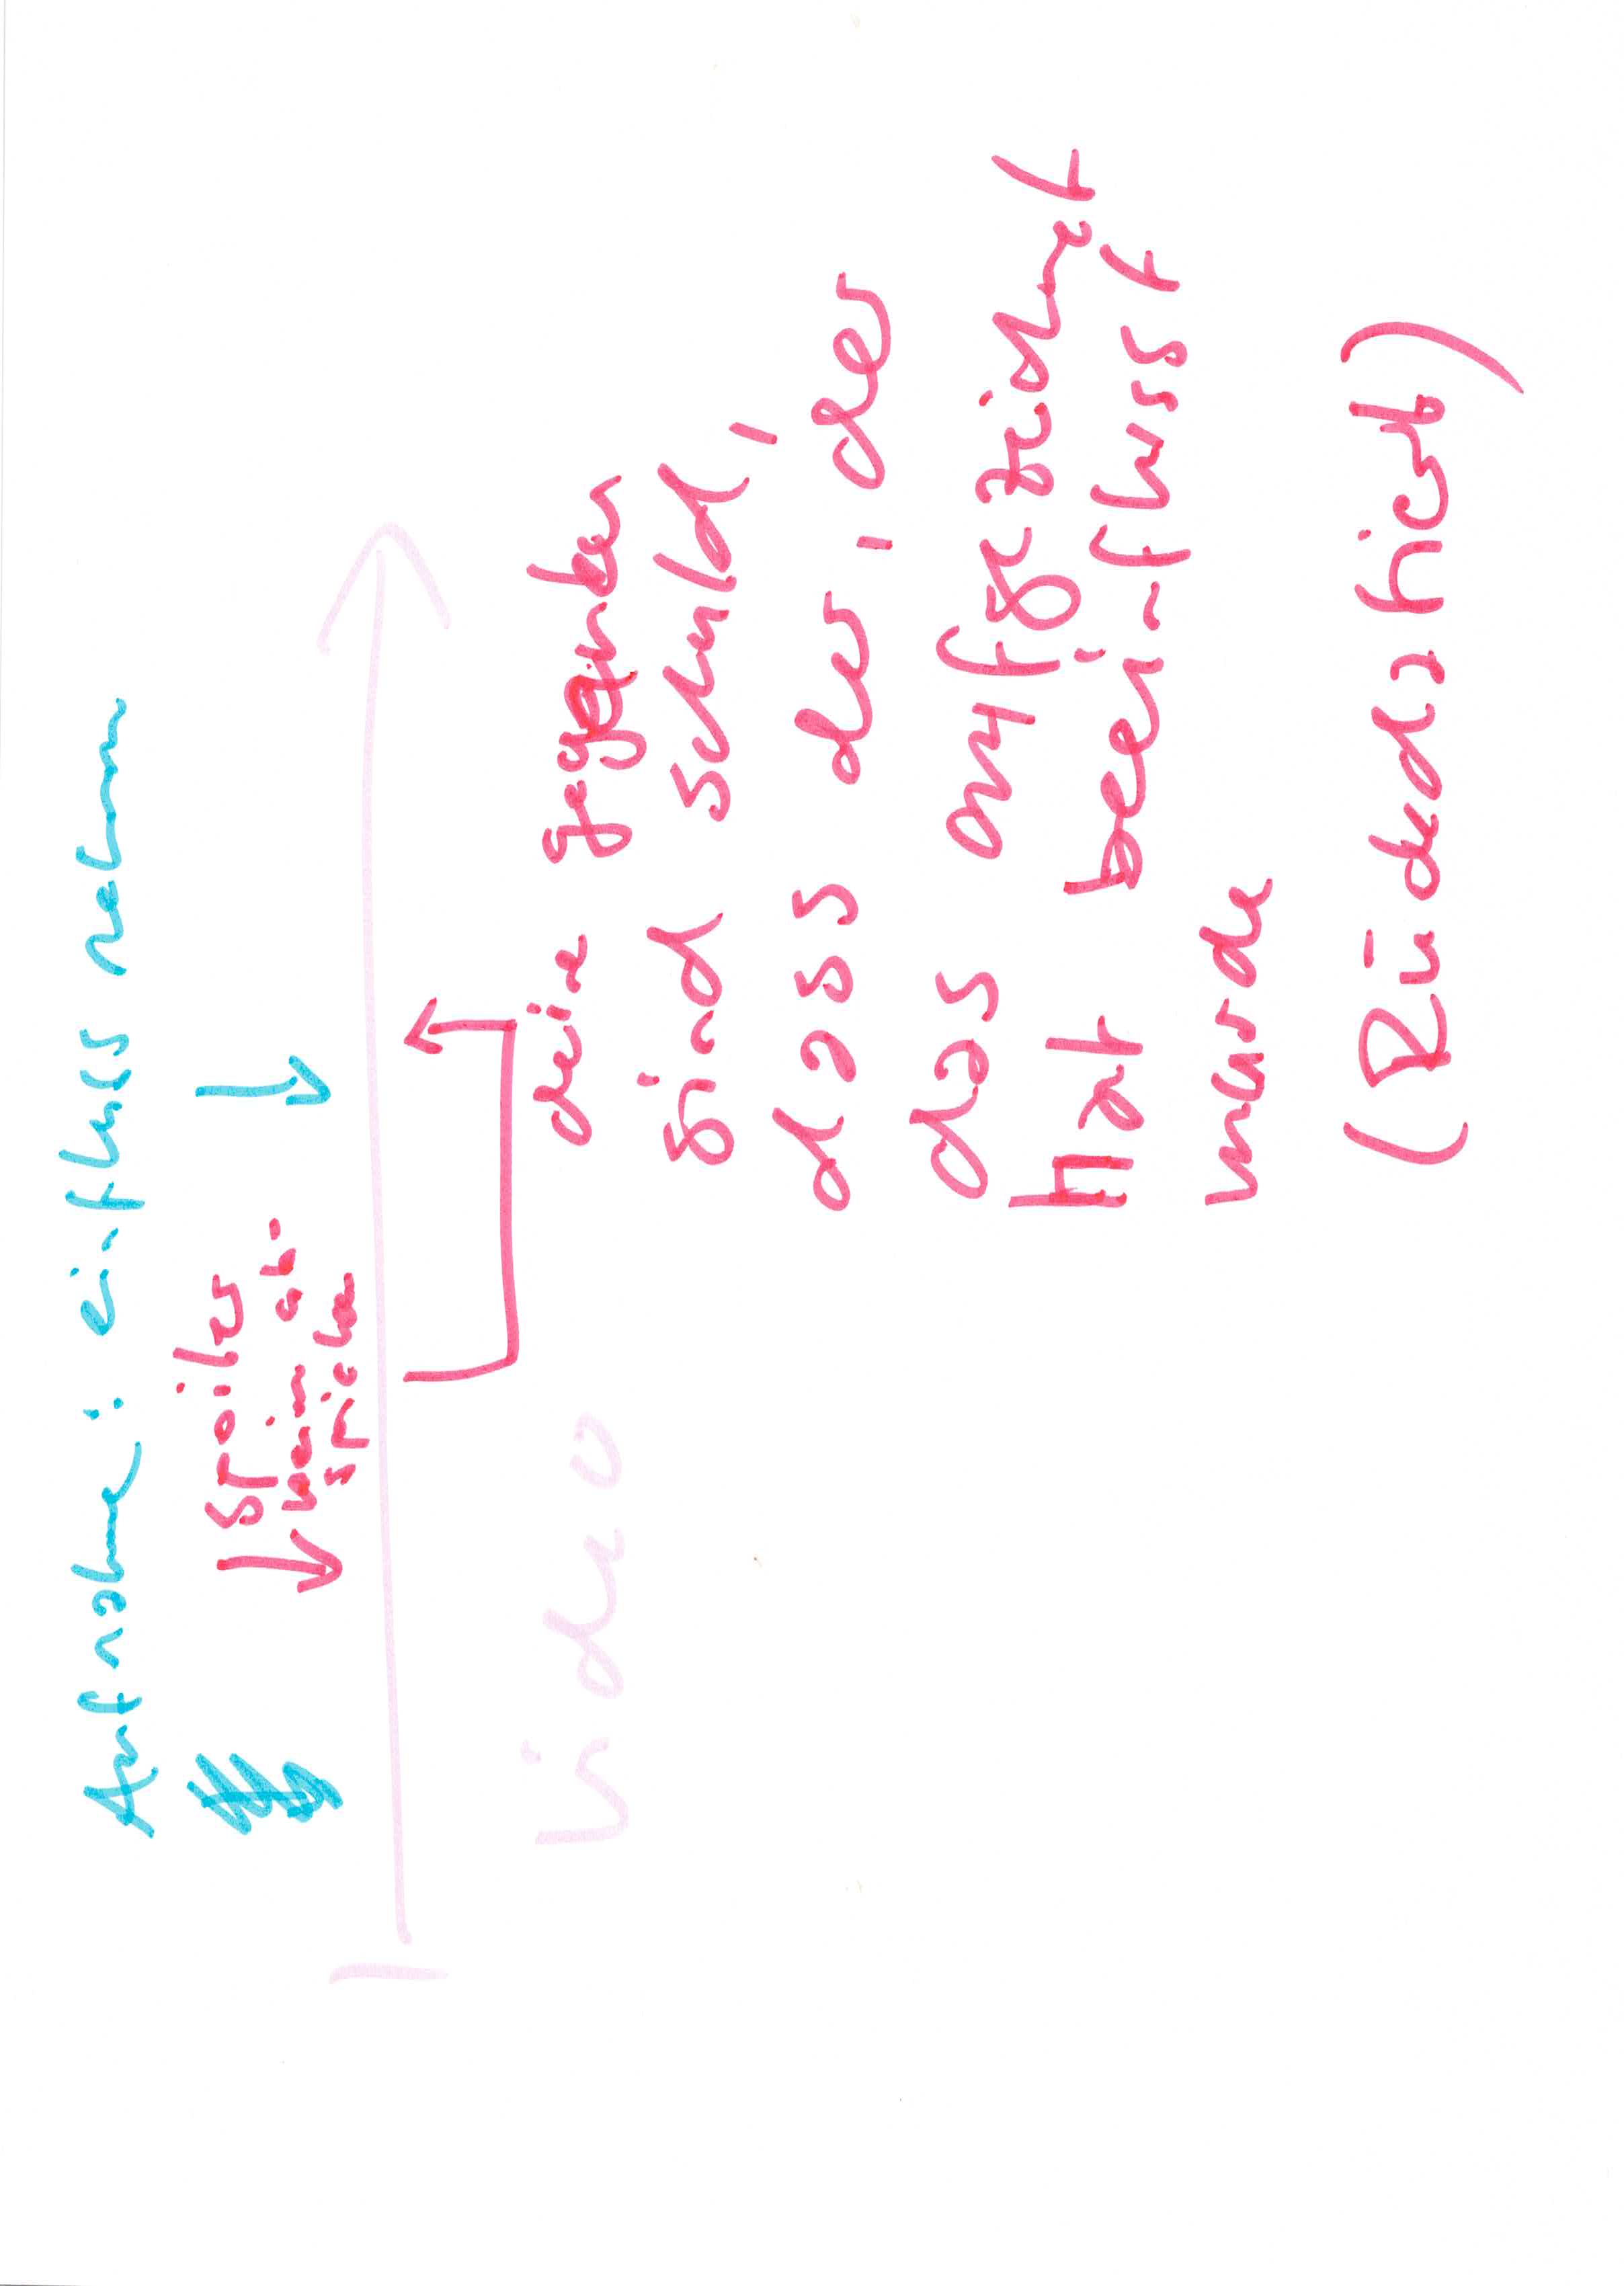 Aufnahme: einfluss nehm
spoiler
beim ab-
spielen
video
deine gegenüber
sind schuld,
dass der, der
das aufgezeichnet
hat beeinflusst
wurde
(Rückwärts hierb)